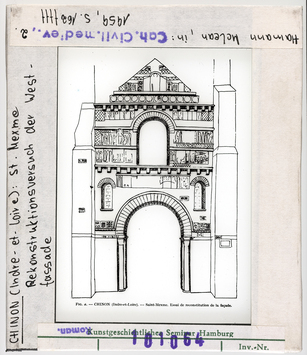 Hamann McLean, in: Cah. Civil. mediev., 2.
1959, S. 162ffff
CHINON (Indre-et-Loire): St. Mexme
Rekonstruktionsversuch der West-
fassade
FIG. 2. — CHINON (Indre-et-Loire). — Saint-Mexme. Essai de reconstitution de la façade.
Roman.
Kunstgeschichtliches Seminar Hamburg
101064
Inv.-Nr.